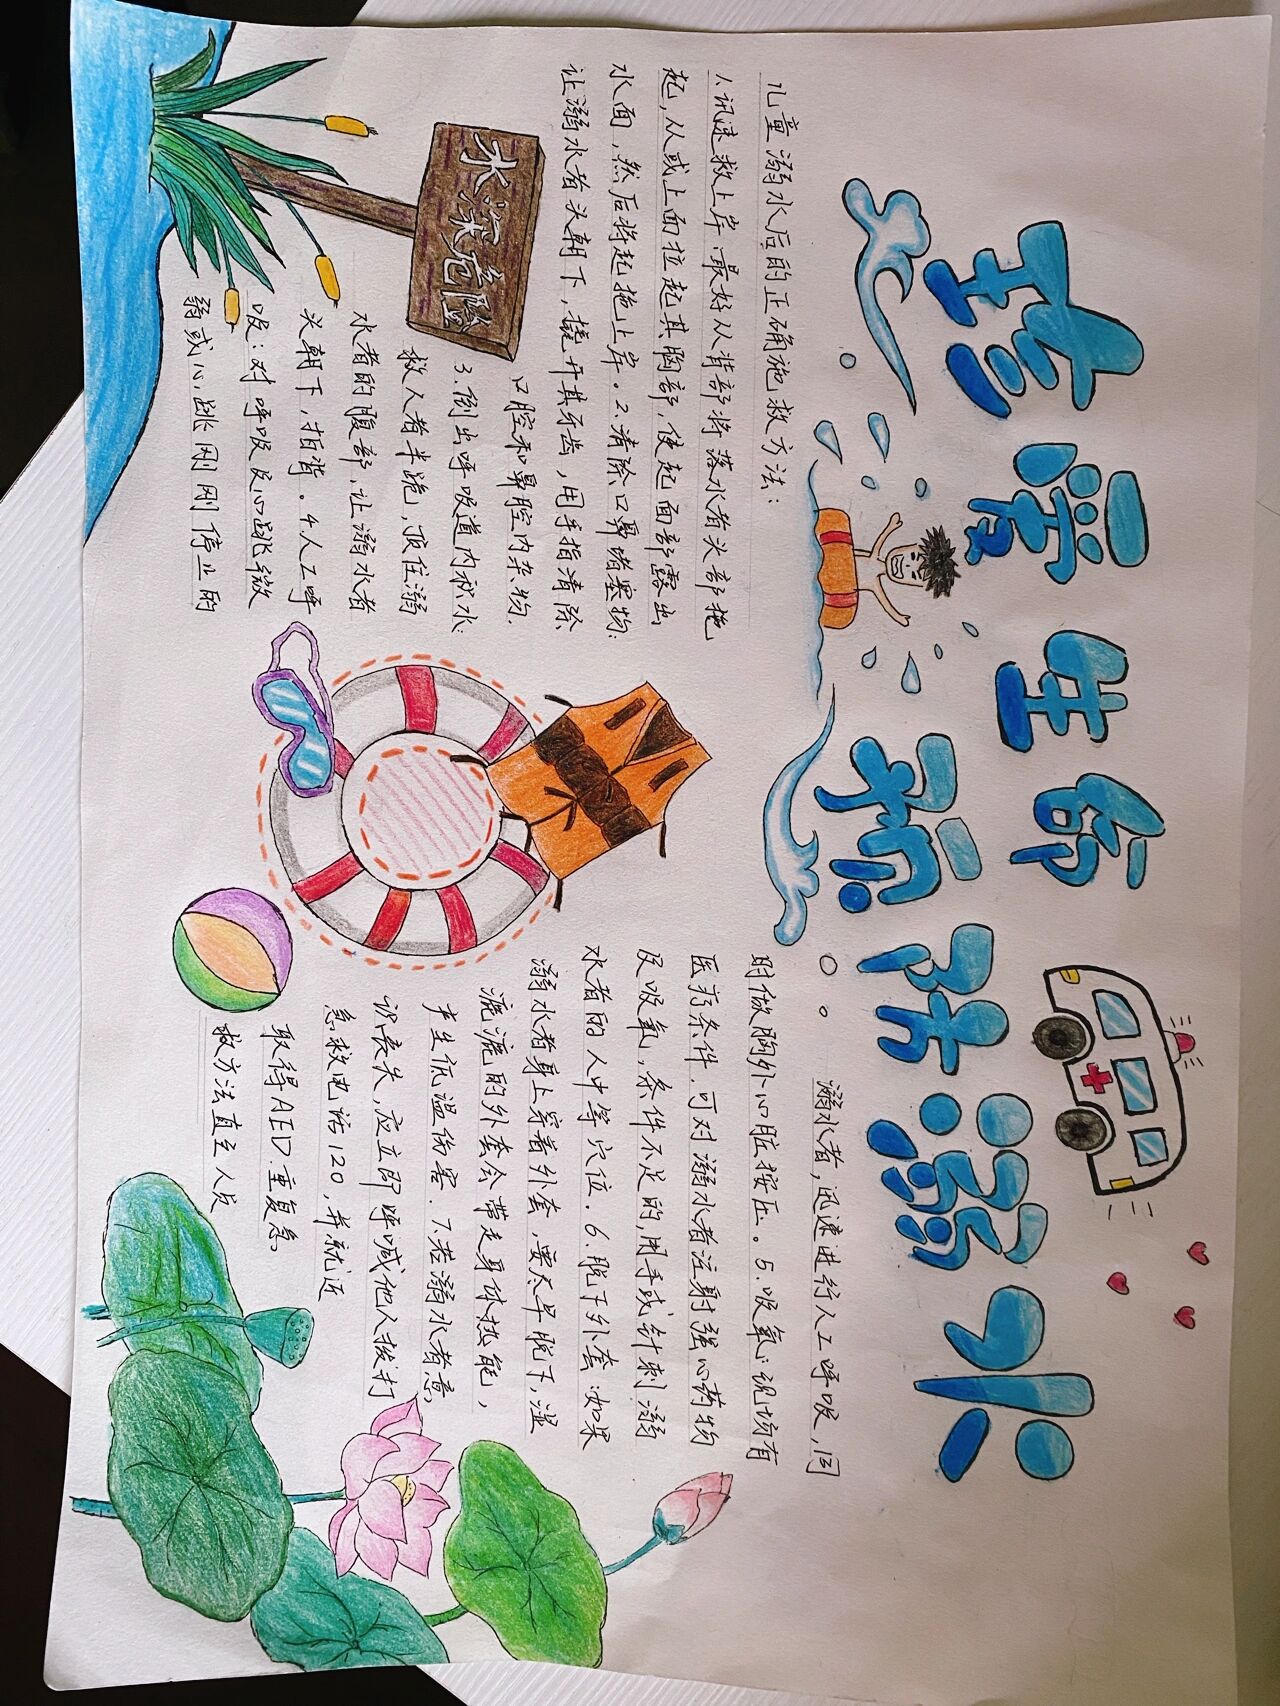 珍爱生命
预防溺水
水深危险
儿童溺水后的正确施救方法：
1.讯速救上岸：最好从背部将落水者头部拖
起，从或上面拉起其胸部，使起面部露出
水面，然后将起拖上岸。2.清除口鼻堵塞物：
让溺水者头朝下，撬开其牙齿，用手指清除
口腔和鼻腔内杂物.
3.倒出呼吸道内积水：
救人者半跪，顶住溺
水者的腹部，让溺水者
头朝下，拍背。4.人工呼
吸：对呼吸及心跳微
弱或心跳刚刚停止的
溺水者，迅速进行人工呼吸，同
时做胸外心脏按压。5.吸氧：现场有
医疗条件，可对溺水者注射强心药物
及吸氧，条件不足的，用手或针刺溺
水者的人中等穴位。6.脱下外套：如果
溺水者身上穿着外套，要尽早脱下，湿
漉漉的外套会带走身体热能，
产生低温伤害。7.若溺水者意
识丧失，应立即呼喊他人拨打
急救电话120，并就近
取得AED重复急
救方法直至人员